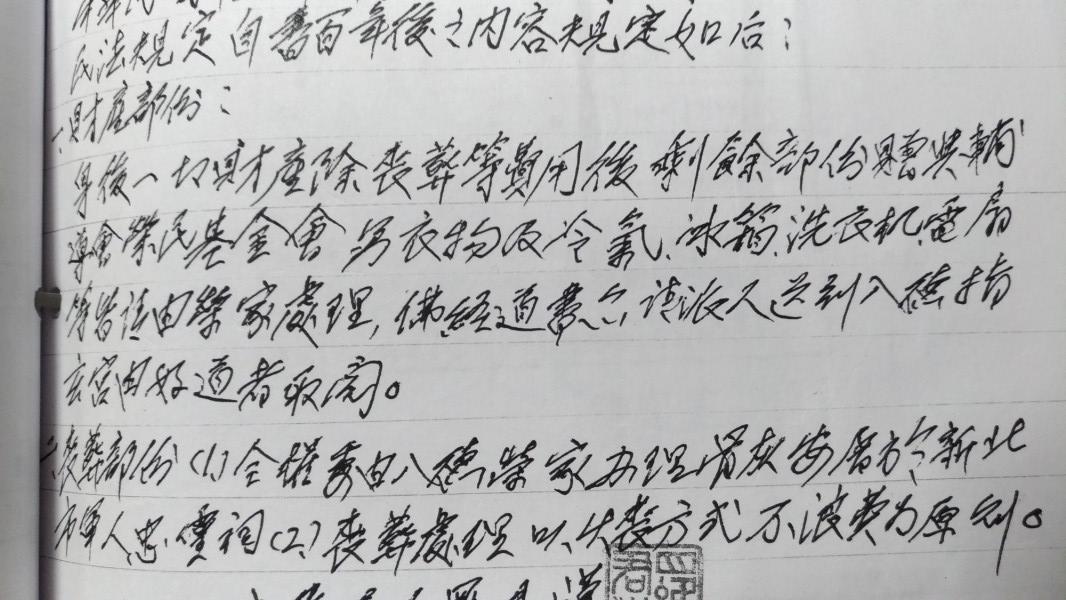 民法規定自書百年後之內容規定如后：
一、財產部份：
身後一切財產除喪葬等費用後剩餘部份贈與輔
導會榮民基金會另衣物及冷氣、冰箱、洗衣机、電扇
等皆請由榮家處理，佛經道書亦請派人送到八德指
玄宮由好道者取閱。
二、喪葬部份(1.)全權委由八德榮家办理骨灰安厝於新北
市軍人忠靈祠(2.)喪葬處理以火葬方式不浪費為原則。